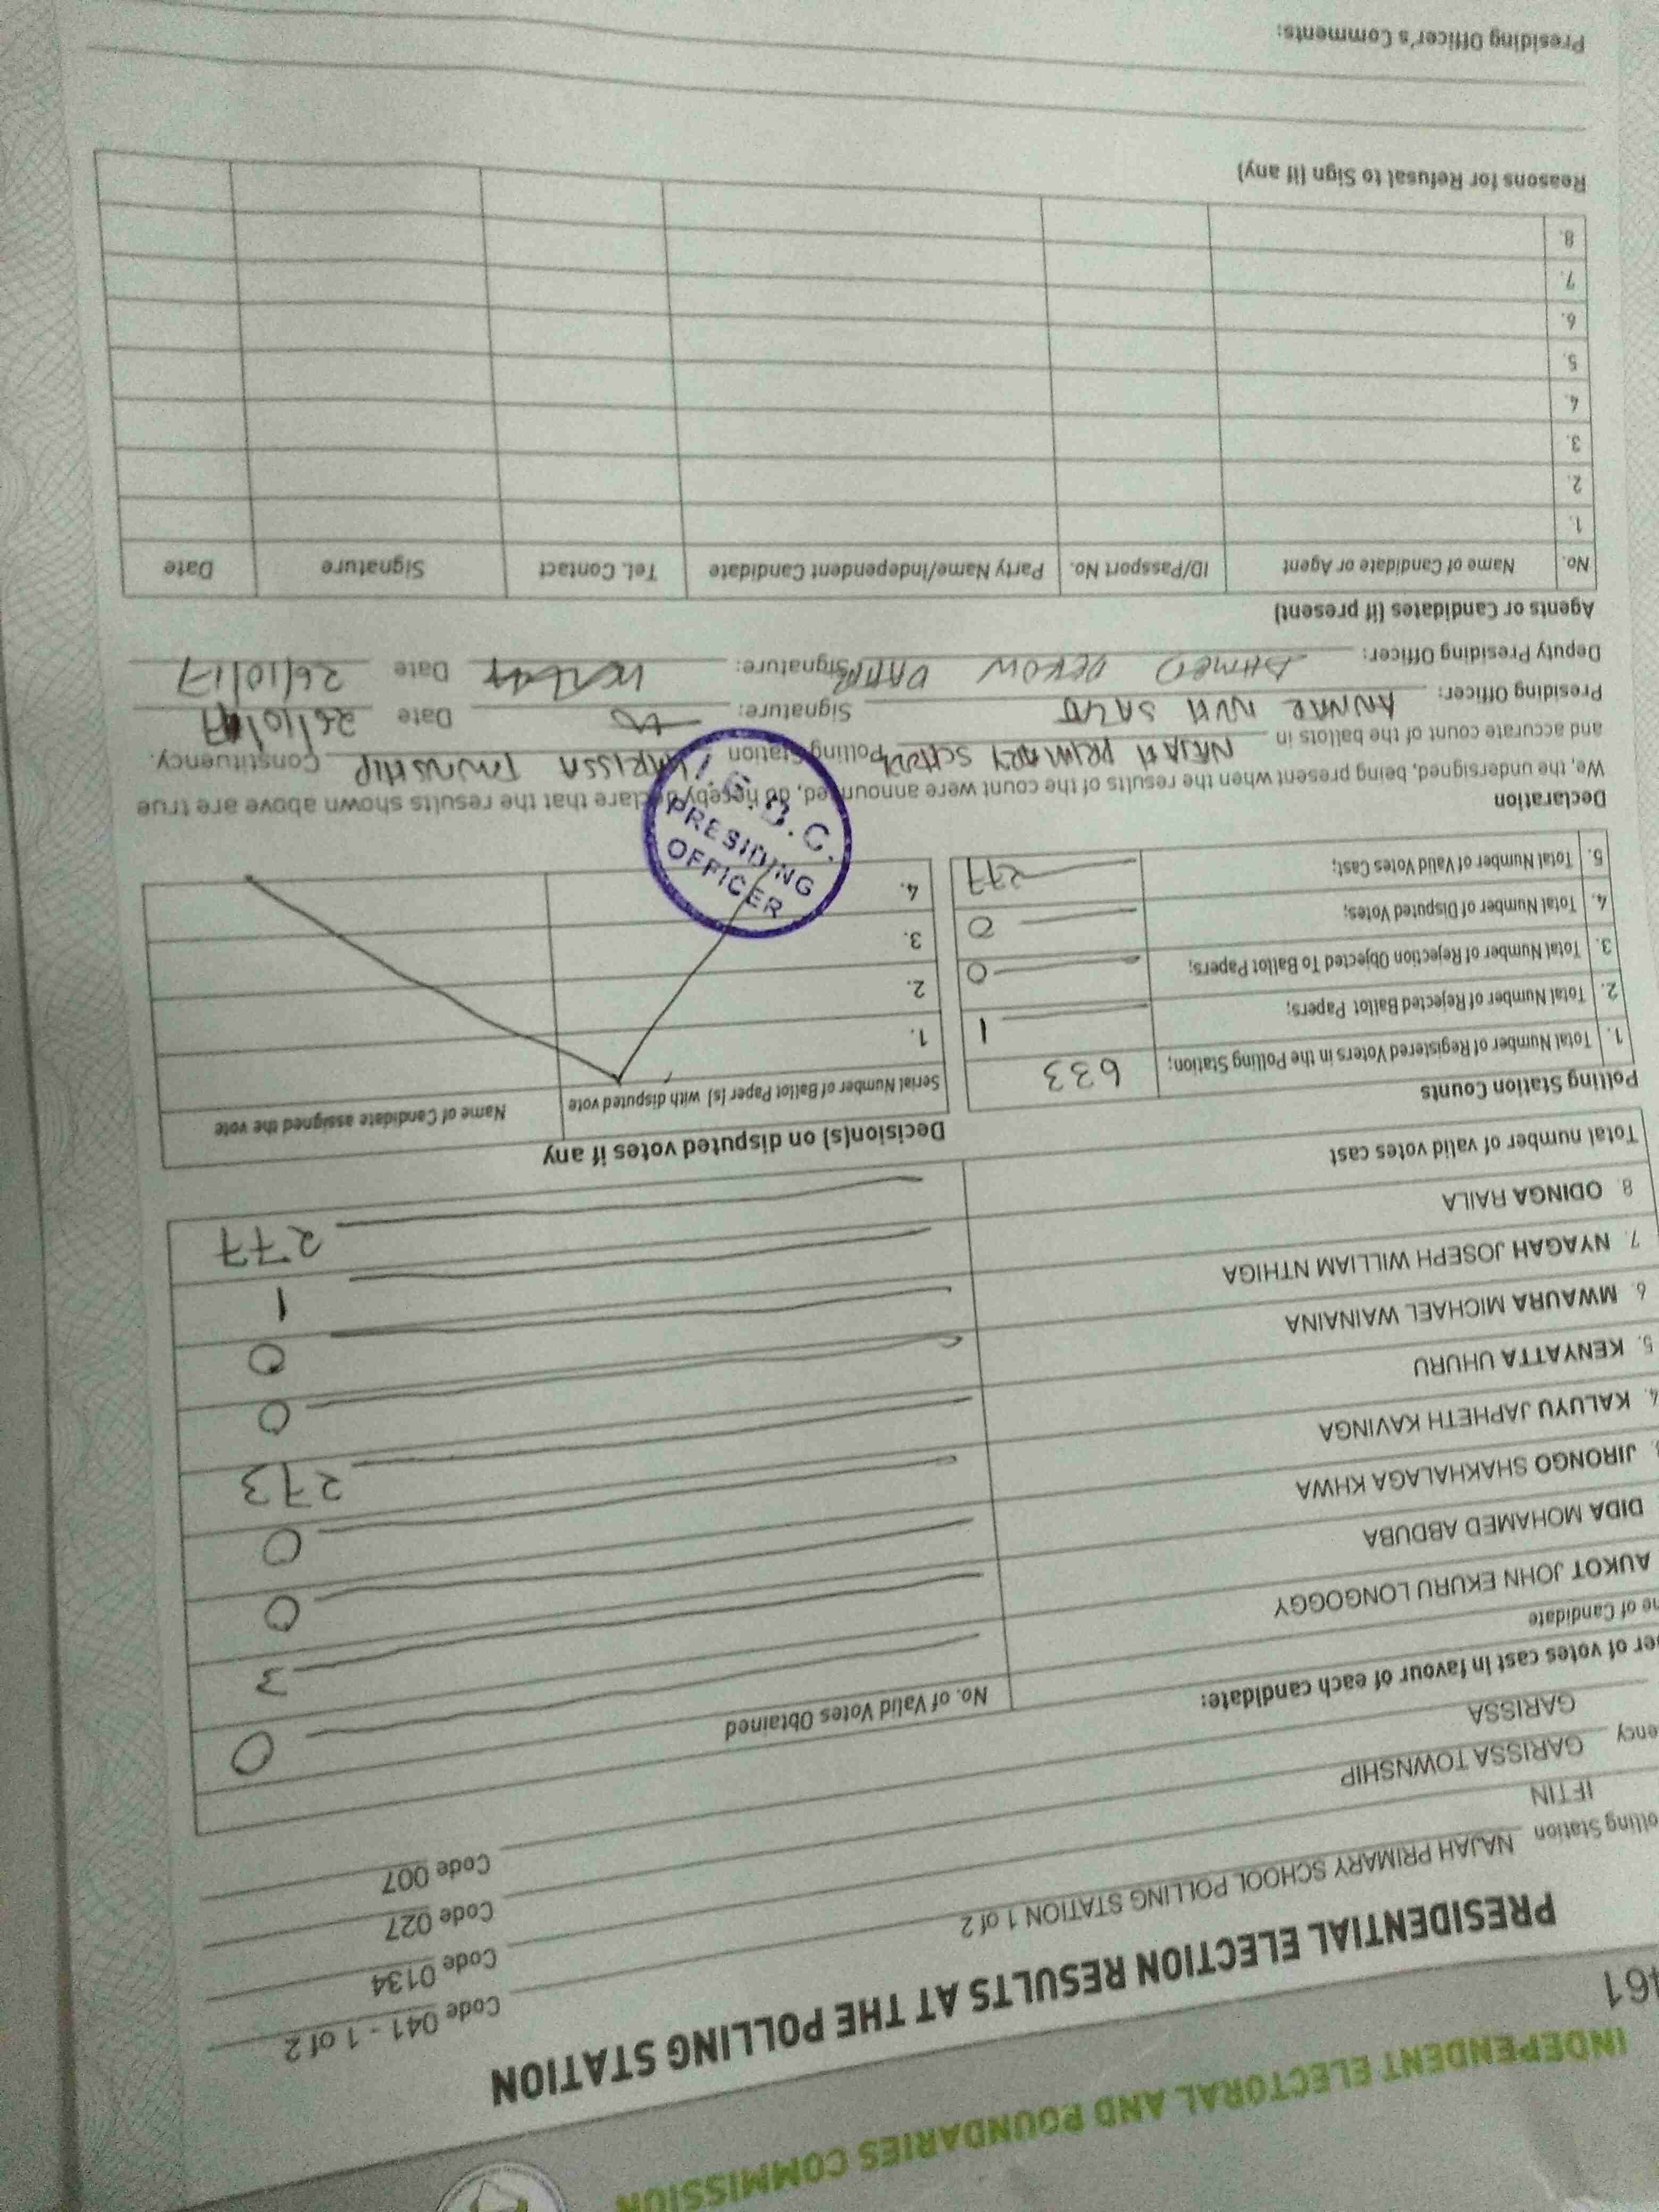 INDEPENDENT ELECTORAL AND BOUNDARIES COMMISSION
461
PRESIDENTIAL ELECTION RESULTS AT THE POLLING STATION
olling Station NAJAH PRIMARY SCHOOL POLLING STATION 1 of 2 Code 041 - 1 of 2
IFTIN Code 0134
ency GARISSA TOWNSHIP Code 027
GARISSA Code 007
er of votes cast in favour of each candidate:
me of Candidate No. of Valid Votes Obtained
AUKOT JOHN EKURU LONGOGGY 0
DIDA MOHAMED ABDUBA 3
3. JIRONGO SHAKHALAGA KHWA 0
4. KALUYU JAPHETH KAVINGA 0
5. KENYATTA UHURU 273
6. MWAURA MICHAEL WAINAINA 0
7. NYAGAH JOSEPH WILLIAM NTHIGA 0
8. ODINGA RAILA 1
Total number of valid votes cast 277
Polling Station Counts
1. Total Number of Registered Voters in the Polling Station; 633
2. Total Number of Rejected Ballot Papers; 1
3. Total Number of Rejection Objected To Ballot Papers; 0
4. Total Number of Disputed Votes; 0
5. Total Number of Valid Votes Cast; 277
Decision(s) on disputed votes if any
Serial Number of Ballot Paper (s) with disputed vote Name of Candidate assigned the vote
1.
2.
3.
4.
I.E.B.C.
PRESIDING
OFFICER
Declaration
We, the undersigned, being present when the results of the count were announced, do hereby declare that the results shown above are true
and accurate count of the ballots in NAJAH PRIMARY SCHOOL Polling Station GARISSA TOWNSHIP Constituency.
Presiding Officer: NUH Signature: Date 26/10/17
Deputy Presiding Officer: AHMED DEKOW Signature: Date 26/10/17
Agents or Candidates (if present)
No. Name of Candidate or Agent ID/Passport No. Party Name/Independent Candidate Tel. Contact Signature Date
1.
2.
3.
4.
5.
6.
7.
8.
Reasons for Refusal to Sign (if any)
Presiding Officer's Comments: